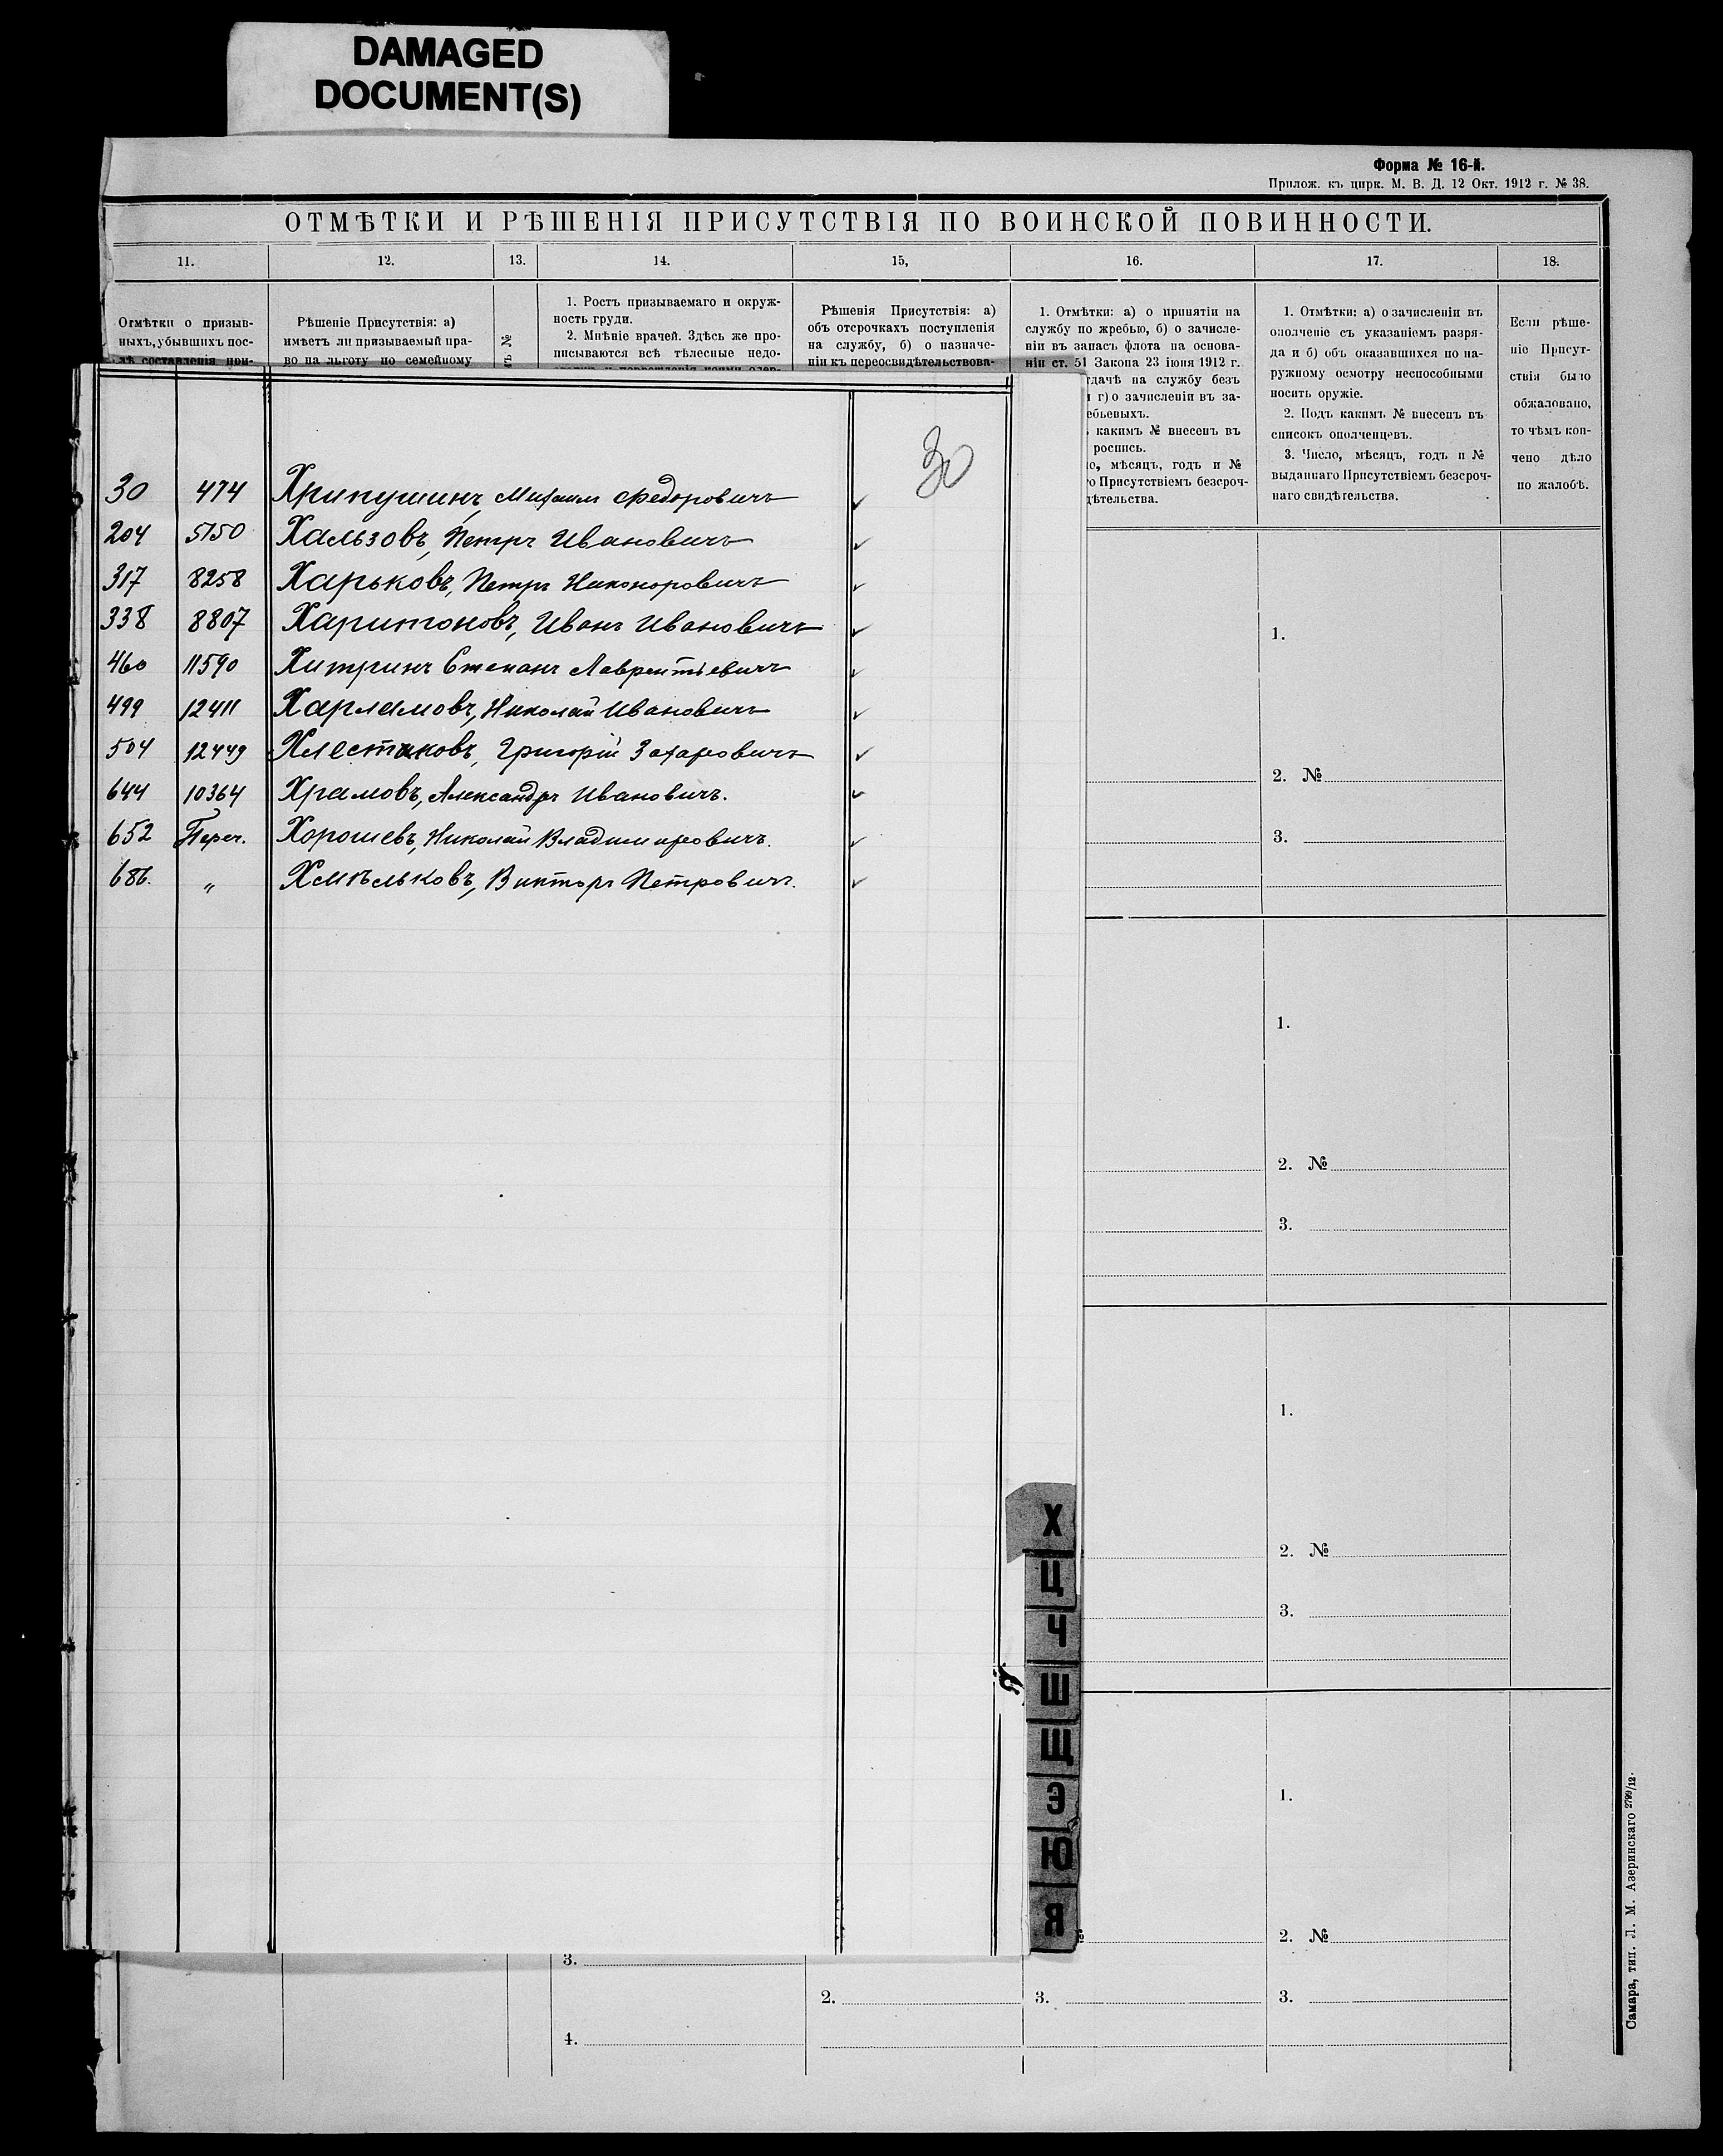 DAMAGED
DOCUMENT(S)
Форма № 16-й.
Прилож. къ цирк. М. В. Д. 12 Окт. 1912 г. № 38.
ОТМѢТКИ И РѢШЕНІЯ ПРИСУТСТВІЯ ПО ВОИНСКОЙ ПОВИННОСТИ.
11. 12. 13. 14. 15, 16. 17. 18.
Отмѣтки о призыв-
ныхъ, убывшихъ пос-
лѣ составленія при-
Рѣшеніе Присутствія: а)
имѣетъ ли призываемый пра-
во на льготу по семейному
№
1. Ростъ призываемаго и окруж-
ность груди.
2. Мнѣніе врачей. Здѣсь же про-
писываются всѣ тѣлесные недо-
Рѣшенія Присутствія: а)
объ отсрочкахъ поступленія
на службу, б) о назначе-
ніи къ переосвидѣтельствова-
1. Отмѣтки: а) о принятіи на
службу по жребью, б) о зачисле-
ніи въ запасъ флота на основа-
ніи ст. 51 Закона 23 іюня 1912 г.
тдачѣ на службу безъ
и г) о зачисленіи въ за-
ебьевыхъ.
каким № внесенъ въ
роспись.
о, мѣсяцъ, годъ и №
о Присутствіемъ безсроч-
дѣтельства.
1. Отмѣтки: а) о зачисленіи въ
ополченіе съ указаніемъ разря-
да и б) объ оказавшихся по на-
ружному осмотру неспособными
носить оружіе.
2. Подъ какимъ № внесенъ въ
списокъ ополченцевъ.
3. Число, мѣсяцъ, годъ и №
выданнаго Присутствіемъ безсроч-
наго свидѣтельства.
Если рѣше-
ніе Присут-
ствія было
обжаловано,
то чѣмъ кон-
чено дѣло
по жалобѣ.
30
30 474 Хрипушинъ, Михаилъ Федоровичъ
204 5150 Хальзовъ, Петръ Ивановичъ
317 8258 Харьковъ, Петръ Никоноровичъ
338 8807 Харитоновъ, Иванъ Ивановичъ
460 11590 Хитринъ Степанъ Лаврентіевичъ
499 12411 Харламовъ, Николай Ивановичъ
504 12449 Хлестаковъ, Григорій Захаровичъ
644 10364 Храмовъ, Александръ Ивановичъ.
652 Переч. Хорошевъ, Николай Владимировичъ.
686. " Хмѣльковъ, Викторъ Петровичъ.
1.
2. №
3.
1.
2. №
3.
1.
2. №
3.
1.
2. №
3.
Х
Ц
Ч
Ш
Щ
Э
Ю
Я
3.
2.
3.
4.
Самара, тип. Л. М. Азеринскаго 2799/12.